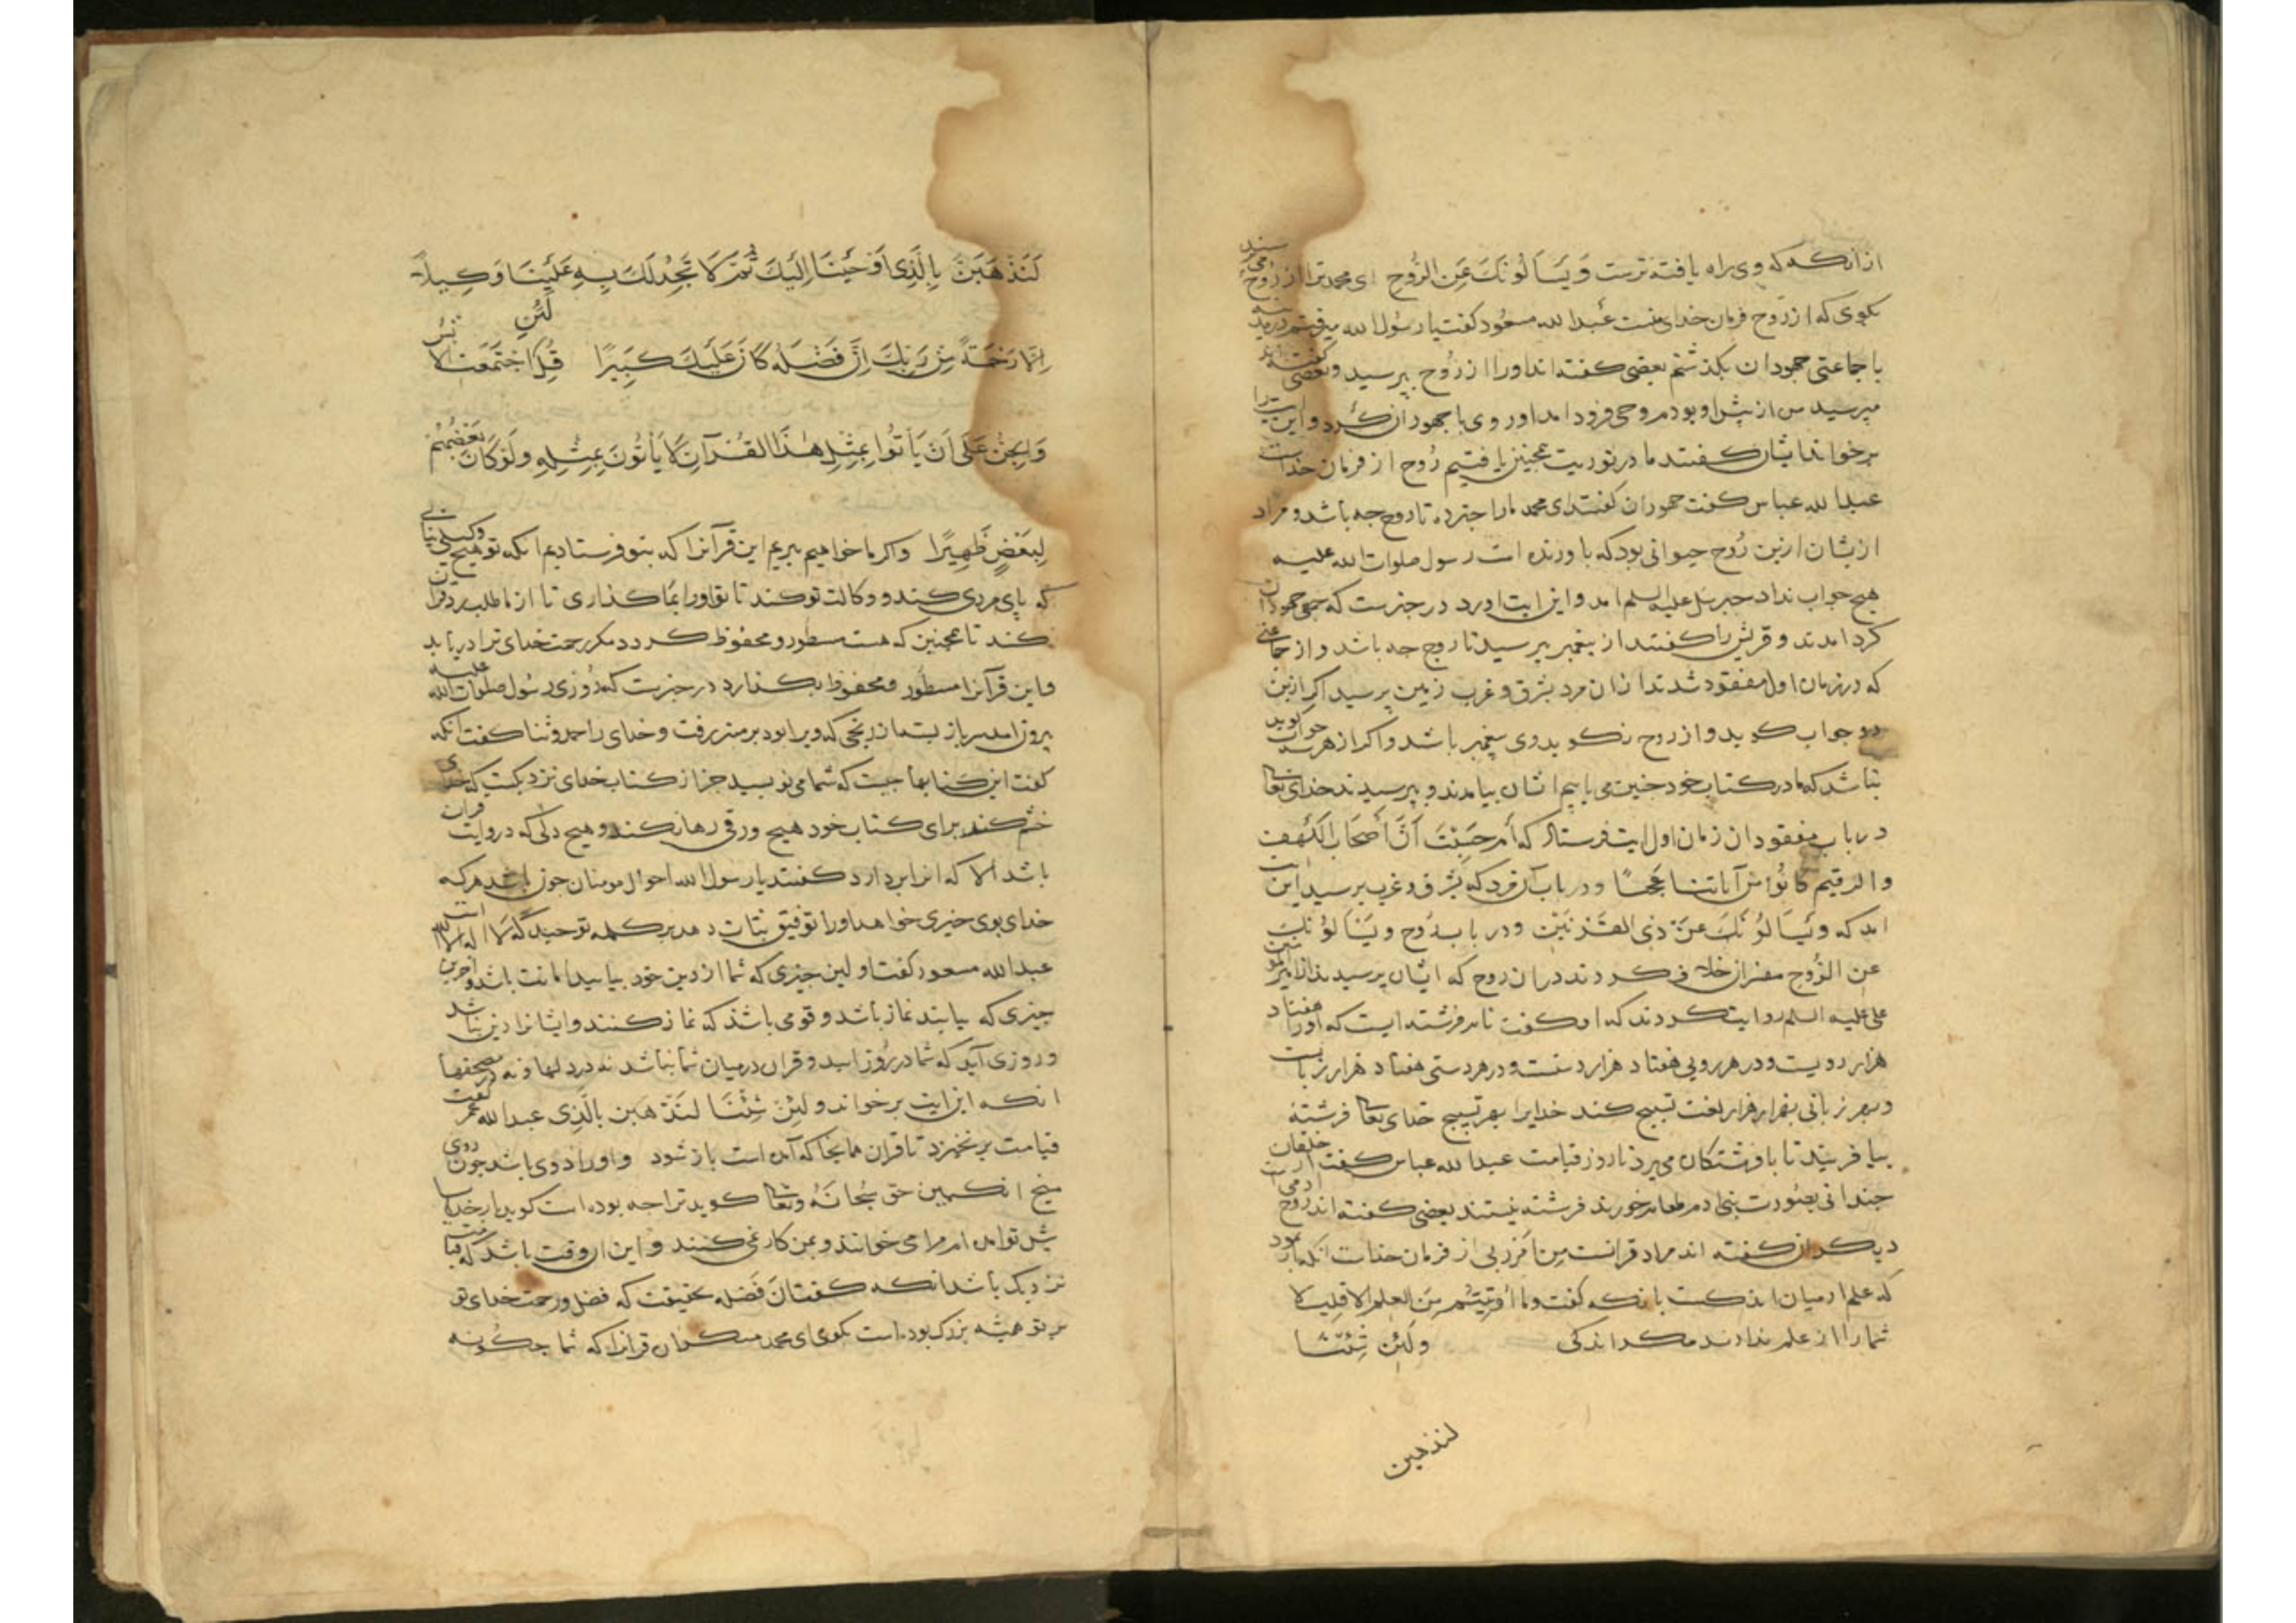 از انکه که وی براه یافته ترست وَيَسْأَلُونَكَ عَنِ الرُّوحِ ای محمد ترا از روح می پرسند
بکوی که از روح فرمان خدای منست عبدالله مسعود کفت با رسول الله میرفتم در مدینه
با جماعتی جهودان بکذشتم بعضی کفتند او را از روح بپرسید و بعضی کفتند
مپرسید من از پیش او بودم وحی فرود امد او روی با جهودان کرد و این ایت را
برخواند ایشان کفتند ما در توریت همچنین یافتیم روح از فرمان خداست
عبدالله عباس کفت جهودان کفتند ای محمد ما را خبر ده تا روح چه باشد و مراد
ازیشان ازین روح حیوانی بود که با ورنده است رسول صلوات الله علیه
هیچ جواب نداد جبریل علیه السلم امد و این ایت اورد در خبرست که جمعی جهودان
کرد امدند و قریش را کفتند از پیغمبر بپرسید تا روح چه باشد و از جماعتی
که در زمان اول مفقود شدند از ان مرد بشرق و غرب زمین برسید اکر ازین
دو جواب کوید و از روح نکوید وی پیغمبر باشد و اکر از هر سه جواب کوید
نباشد که ما در کتاب خود چنین می یابیم ایشان بیامدند و بپرسیدند خدای تعالی
در باب مفقودان زمان اول ایت فرستاد که أَمْ حَسِبْتَ أَنَّ أَصْحَابَ الْكَهْفِ
وَالرَّقِيمِ كَانُوا مِنْ آيَاتِنَا عَجَبًا و در باب آن مرد که بشرق و غرب برسید این ایت
امد که وَيَسْأَلُونَكَ عَنْ ذِي الْقَرْنَيْنِ و در باب روح وَيَسْأَلُونَكَ
عَنِ الرُّوحِ مفسران خلاف کردند در ان روح که ایشان پرسیدند از امیرالمومنین
علی علیه السلم روایت کردند که او کفت نام فرشته ایست که او را هفتاد
هزار رویست و در هر رویی هفتاد هزار دست و در هر دستی هفتاد هزار زبانست
و بهر زبانی بهزار هزار لغت تسبیح کند خدایرا بهر تسبیح خدای تعالی فرشته
بیافریند تا با فرشتکان می پرد تا روز قیامت عبدالله عباس کفت خلقان
چندانی بصورت بنی ادم طعام خورند فرشته نیستند بعضی کفته اند روح ادمی است
دیکران کفته اند مراد قرانست مِنْ أَمْرِ رَبِّي از فرمان خداست انکه باز نمود
که علم ادمیان اندکست بانکه کفت وَمَا أُوتِيتُمْ مِنَ الْعِلْمِ إِلَّا قَلِيلًا
شما را از علم ندادند مکر اندکی وَلَئِنْ شِئْنَا
لنذهبن
لَنَذْهَبَنَّ بِالَّذِي أَوْحَيْنَا إِلَيْكَ ثُمَّ لَا تَجِدُ لَكَ بِهِ عَلَيْنَا وَكِيلًا
إِلَّا رَحْمَةً مِنْ رَبِّكَ إِنَّ فَضْلَهُ كَانَ عَلَيْكَ كَبِيرًا قُلْ لَئِنِ اجْتَمَعَتِ الْإِنْسُ
وَالْجِنُّ عَلَى أَنْ يَأْتُوا بِمِثْلِ هَذَا الْقُرْآنِ لَا يَأْتُونَ بِمِثْلِهِ وَلَوْ كَانَ بَعْضُهُمْ
لِبَعْضٍ ظَهِيرًا واکر ما خواهیم ببریم این قرآنرا که بتو فرستادیم انکه تو هیچ وکیلی نیابی
که پای مردی کند و وکالت تو کند تا تو او را بما کذاری تا از ما طلب رد قران
کند تا همچنین که هست مسطور و محفوظ کردد مکر رحمت خدای ترا دریابد
و این قرآنرا مسطور و محفوظ بکذارد در خبرست که روزی رسول صلوات الله علیه
بیرون امد سر باز بسته از رنجی که ویرا بود بر منبر رفت و خدای را حمد و ثنا کفت انکه
کفت این کتابها چیست که شما می نویسید جز از کتاب خدای نزدیکست که خدای
خشم کند برای کتاب خود هیچ ورقی رها نکند و هیچ دلی که در وایت قران
باشد الا که انرا بردارد کفتند یا رسول الله احوال مومنان چون باشد هر که
خدای بوی خیری خواهد او را توفیق ثبات دهد بر کلمه توحید که لا اله الا الله است
عبدالله مسعود کفت اولین چیزی که شما از دین خود بیابید امانت باشد و اخرین
چیزی که بیابند نماز باشد و قومی باشند که نماز کنند و ایشانرا دین نباشد
و روزی آید که شما در روز ایید و قران در میان شما نباشد نه در دلها و نه در مصحفها
انکه این ایت برخواند وَلَئِنْ شِئْنَا لَنَذْهَبَنَّ بِالَّذِي عبدالله عمر کفت
قیامت برنخیزد تا قران همانجا که آمده است باز شود و او را دوی باشد چون دوی
منج انکبین حق سُبحانَهُ وتعالی کوید ترا چه بوده است کوید بار خدایا
پیش تو امده ام مرا می خوانند و بمن کار نمی کنند و این ان وقت باشد که قیامت
نزدیک باشد انکه کفت إِنَّ فَضْلَهُ بحقیقت که فضل و رحمت خدای تو
بر تو همیشه بزرک بوده است بکوی ای محمد منکران قرانرا که شما چکونه